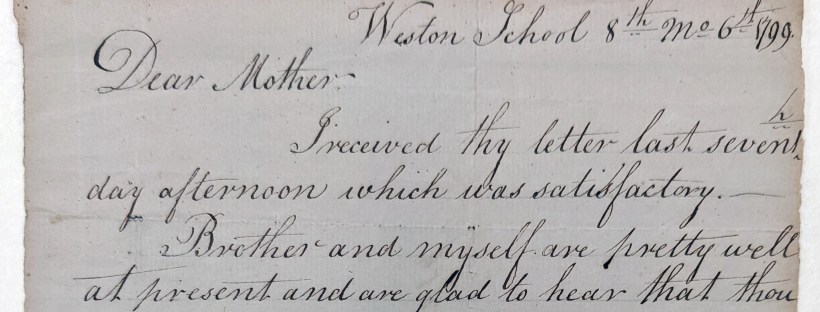 Weston School 8th Mo 6th 1799.
Dear Mother
I received thy letter last seventh
day afternoon which was satisfactory. —
Brother and myself are pretty well
at present and are glad to hear that thou